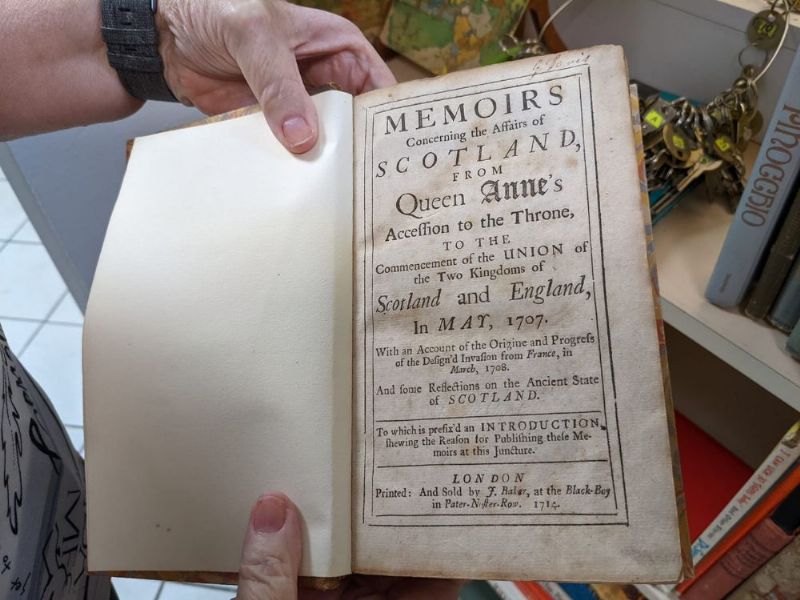 MEMOIRS
Concerning the Affairs of
SCOTLAND,
FROM
Queen Anne's
Acceſſion to the Throne,
TO THE
Commencement of the UNION of
the Two Kingdoms of
Scotland and England,
In MAY, 1707.
With an Account of the Origine and Progreſs
of the Deſign'd Invaſion from France, in
March, 1708.
And ſome Reflections on the Ancient State
of SCOTLAND.
To which is prefix'd an INTRODUCTION,
ſhewing the Reaſon for Publiſhing theſe Me-
moirs at this Juncture.
LONDON
Printed: And Sold by J. Baker, at the Black-Boy
in Pater-Noſter-Row. 1714.
PINOCCHIO